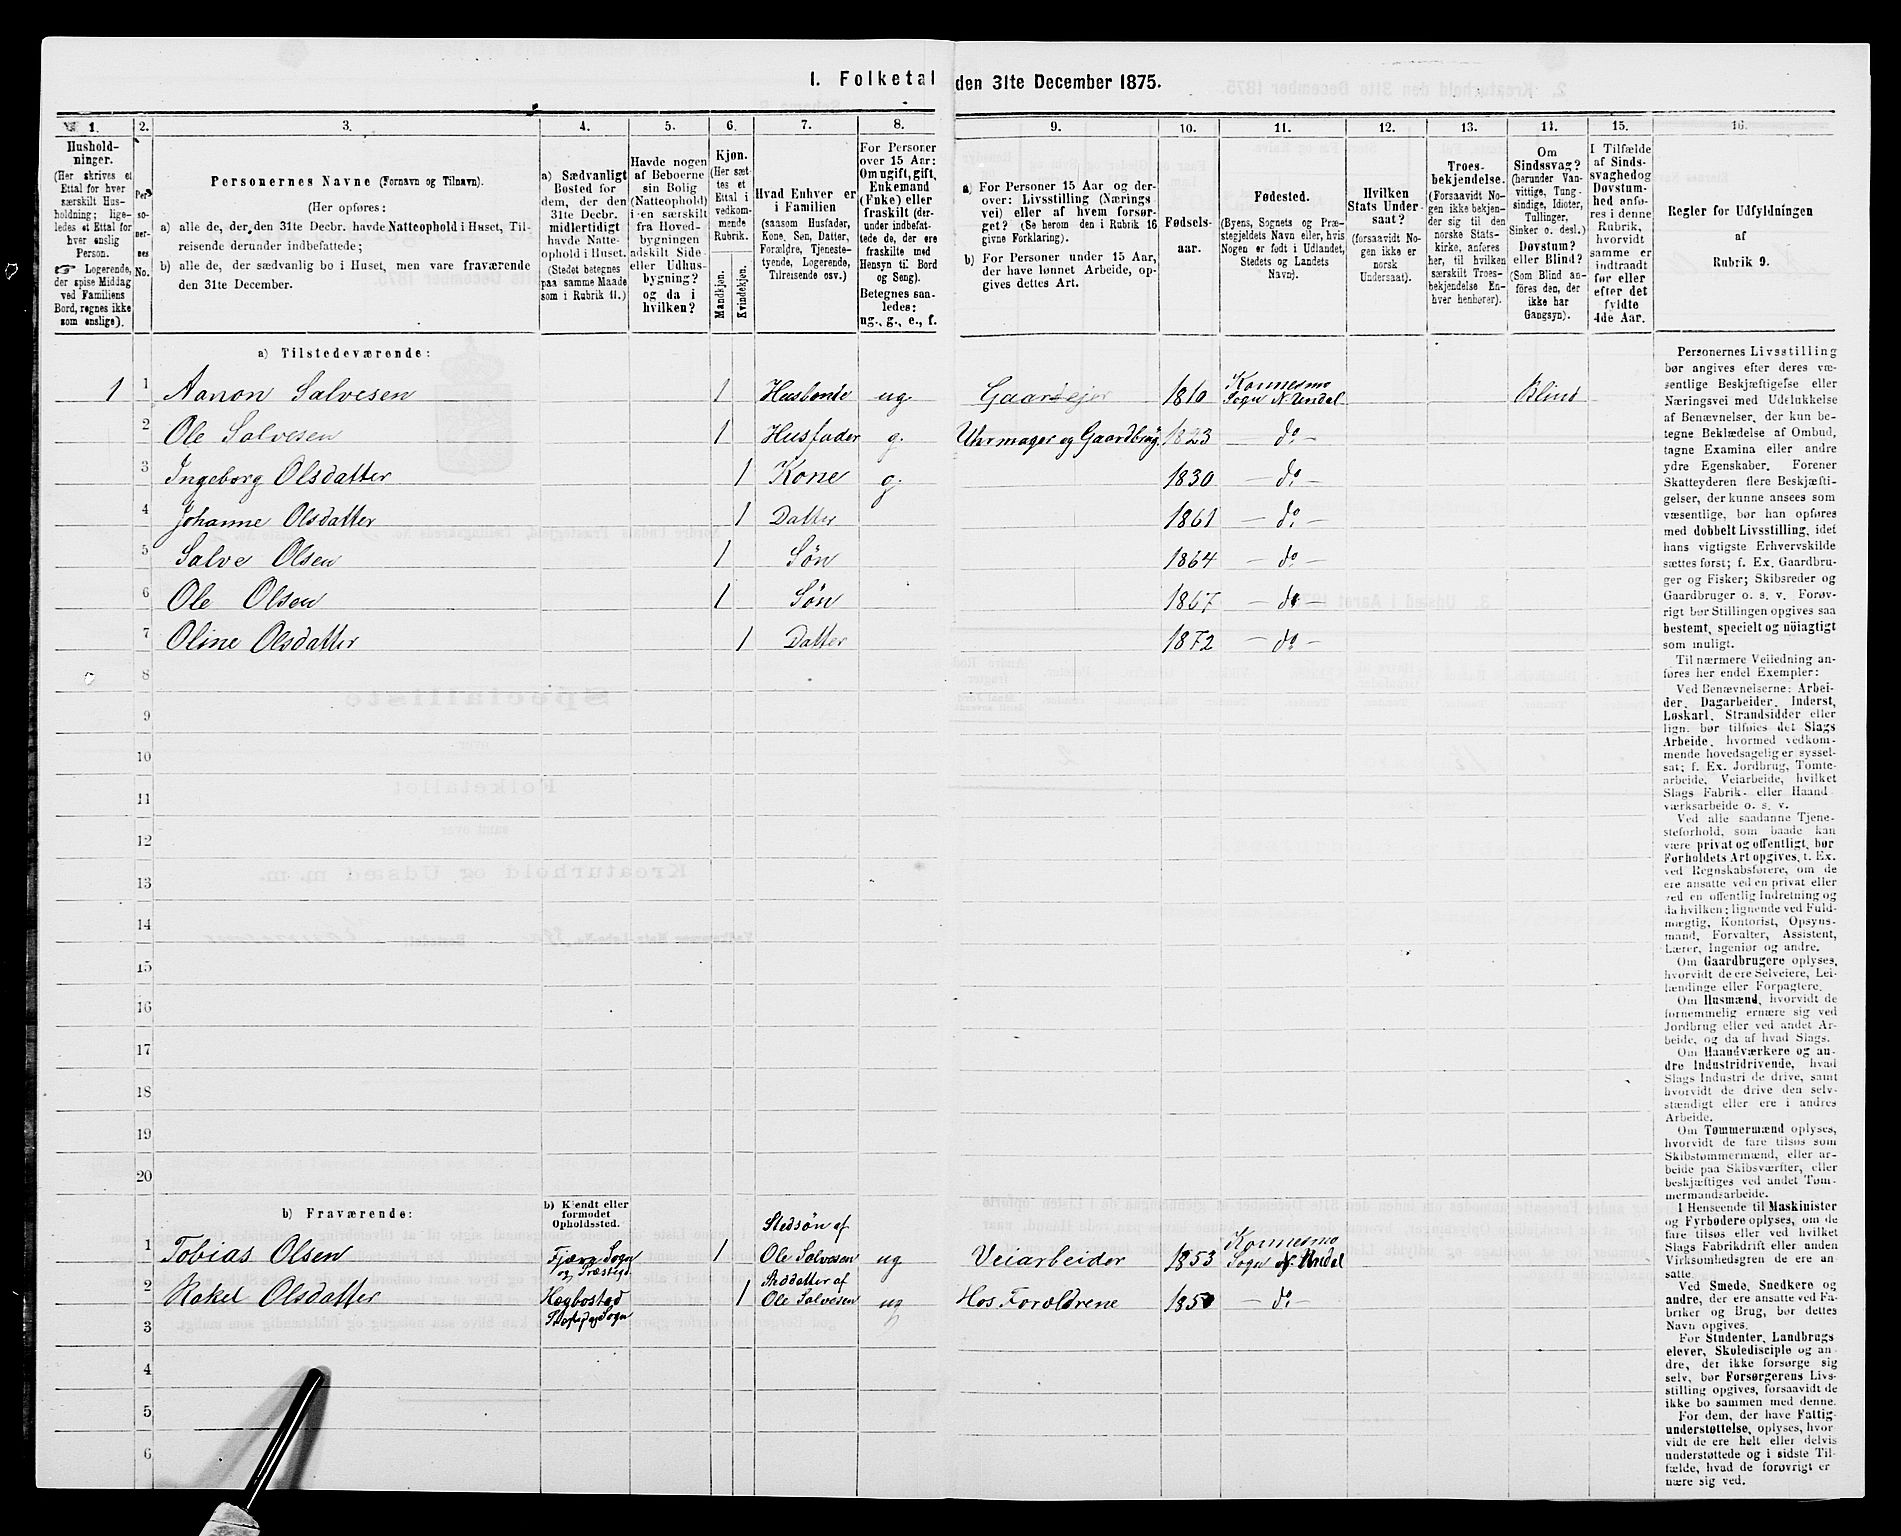 1. Folketal den 31te December 1875.
1. 2. 3. 4. 5. 6. 7. 8. 9. 10. 11. 12. 13. 14. 15. 16.
Hushold-
ninger.
(Her skrives et
Ettal for hver
særskilt Hus-
holdning; lige-
ledes et Ettal for
hver enslig
Person.
☞ Logerende,
der spise Middag
ved Familiens
Bord, regnes ikke
som enslige).
Per-
so-
ner-
nes
No.
Personernes Navne (Fornavn og Tilnavn).
(Her opføres:
a) alle de, der den 31te Decbr. havde Natteophold i Huset, Til-
reisende derunder indbefattede;
b) alle de, der sædvanlig bo i Huset, men vare fraværende
den 31te December.
a) Sædvanligt
Bosted for
dem, der den
31te Decbr.
midlertidigt
havde Natte-
ophold i Huset.
(Stedet betegnes
paa samme Maade
som i Rubrik 11.)
Havde nogen
af Beboerne
sin Bolig
(Natteophold)
i en særskilt
fra Hoved-
bygningen
adskilt Side-
eller Udhus-
bygning?
og da i
hvilken?
Kjøn.
(Her sæt-
tes et
Ettal i
vedkom-
mende
Rubrik.
Mandkjøn.
Kvindekjøn.
Hvad Enhver er
i Familien
(saasom Husfader,
Kone, Søn, Datter,
Forældre, Tjeneste-
tyende, Logerende,
Tilreisende osv.)
For Personer
over 15 Aar:
Om ugift, gift,
Enkemand
(Enke) eller
fraskilt (der-
under indbefat-
tede de, der ere
fraskilte med
Hensyn til Bord
og Seng).
Betegnes saa-
ledes:
ug., g., e., f.
a) For Personer 15 Aar og der-
over: Livsstilling (Nærings-
vei) eller af hvem forsør-
get? (Se herom den i Rubrik 16
givne Forklaring).
b) For Personer under 15 Aar,
der have lønnet Arbeide, op-
gives dettes Art.
Fødsels-
aar.
Fødested.
(Byens, Sognets og Præ-
stegjeldets Navn eller, hvis
Nogen er født i Udlandet,
Stedets og Landets
Navn).
Hvilken
Stats Under-
saat?
(forsaavidt No-
gen ikke er
norsk
Undersaat).
Troes-
bekjendelse.
(Forsaavidt No-
gen ikke bekjen-
der sig til den
norske Stats-
kirke, anføres
her, til hvilken
særskilt Troes-
bekjendelse En-
hver henhører).
Om
Sindssvag?
(herunder Van-
vittige, Tung-
sindige, Idioter,
Tullinger,
Sinker o. desl.)
Døvstum?
eller Blind?
(Som Blind an-
føres den, der
ikke har
Gangsyn).
I Tilfælde
af Sinds-
svaghed og
Døvstum-
hed anfø-
res i denne
Rubrik,
hvorvidt
samme er
indtraadt
før eller
efter det
fyldte
4de Aar.
Regler for Udfyldningen
af
Rubrik 9.
a) Tilstedeværende:
1 1 Aanon Salvesen 1 Husbonde ug. Gaardejer 1810 Konnesmo Sogn N. Undal Blind
2 Ole Salvesen 1 Husfader g. Uhrmager og Gaardbrug. 1823 – do –
3 Ingeborg Olsdatter 1 Kone g. 1830 – do –
4 Johanne Olsdatter 1 Datter 1861 – do –
5 Salve Olsen 1 Søn 1864 – do –
6 Ole Olsen 1 Søn 1867 – do –
7 Oline Olsdatter 1 Datter 1872 – do –
8
9
10
11
12
13
14
15
16
17
18
19
20
b) Fraværende:
b) Kjendt eller
formodet
Opholdssted.
1 Tobias Olsen 1 Stedsøn af Ole Salvesen ug Veiarbeider 1853 Konnesmo Sogn N. Undal
2 Rakel Olsdatter Hægbostad 1 Ole Salvesen ug Hos Forældrene 185 – do –
3
4
5
6
Personernes Livsstilling
bør angives efter deres væ-
sentlige Beskjæftigelse eller
Næringsvei med Udelukkelse
af Benævnelser, der kun be-
tegne Beklædelse af Ombud,
tagne Examina eller andre
ydre Egenskaber. Forener
Skatteyderen flere Beskjæfti-
gelser, der kunne ansees som
væsentlige, bør han opføres
med dobbelt Livsstilling, idet
hans vigtigste Erhvervskilde
sættes først; f. Ex. Gaardbru-
ger og Fisker; Skibsreder og
Gaardbruger o. s. v. Forøv-
rigt bør Stillingen opgives saa
bestemt, specielt og nöiagtigt
som muligt.
Til nærmere Veiledning an-
føres her endel Exempler:
Ved Benævnelserne: Arbei-
der, Dagarbeider, Inderst,
Løskarl, Strandsidder eller
lign. bør tilføies det Slags
Arbeide, hvormed vedkom-
mende hovedsagelig er syssel-
sat; f. Ex. Jordbrug, Tomte-
arbeide, Veiarbeide, hvilket
Slags Fabrik- eller Haand
værksarbeide o. s. v.
Ved alle saadanne Tjene-
steforhold, som baade kan
være privat og offentligt, bør
Forholdets Art opgives, t. Ex.
ved Regnskabsførere, om de
ere ansatte ved en privat eller
ved en offentlig Indretning og
da hvilken; lignende ved Fuld-
mægtig, Kontorist, Opsyns-
mand, Forvalter, Assistent,
Lærer, Ingeniør og andre.
Om Gaardbrugere oplyses,
hvorvidt de ere Selveiere, Lei-
lændinge eller Forpagtere.
Om Husmænd, hvorvidt de
fornemmelig ernære sig ved
Jordbrug eller ved andet Ar-
beide, og da af hvad Slags.
Om Haandværkere og an-
dre Industridrivende, hvad
Slags Industri de drive, samt
hvorvidt de drive den selv-
stændigt eller ere i andres
Arbeide.
Om Tømmermænd oplyses,
hvorvidt de fare tilsøs som
Skibstømmermænd, eller ar-
beide paa Skibsværfter, eller
beskjæftiges ved andet Tøm-
mermandsarbeide.
I Henseende til Maskinister
og Fyrbødere oplyses, om de
fare tilsøs eller ved hvilket
Slags Fabrikdrift eller anden
Virksomhedsgren de ere an-
satte.
Ved Smede, Snedkere og
andre, der ere ansatte ved Fa-
briker og Brug, bør dettes
Navn opgives.
For Studenter, Landbrugs
elever, Skoledisciple og an-
dre, der ikke forsørge sig
selv, bør Forsørgerens Livs-
stilling opgives, forsaavidt de
ikke bo sammen med denne.
For dem, der have Fattig-
understøttelse, oplyses, hvor-
vidt de ere helt eller delvis
understøttede og i sidste Til-
fælde, hvad de forøvrigt er-
nære sig ved.